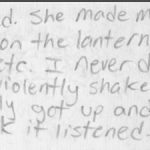 d. She made m
on the lantern
etc. I never d
violently shake
ly got up and
k it listened.